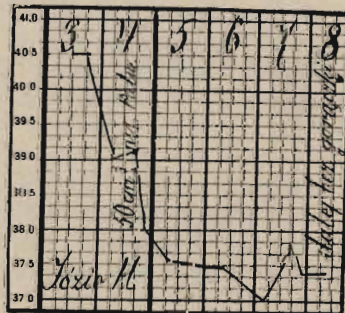 41.0
40.5
40.0
39.5
39.0
38.5
38.0
37.5
37.0
3 4 5 6 7 8
50 cm³
dalej bez gorączki
Józin M